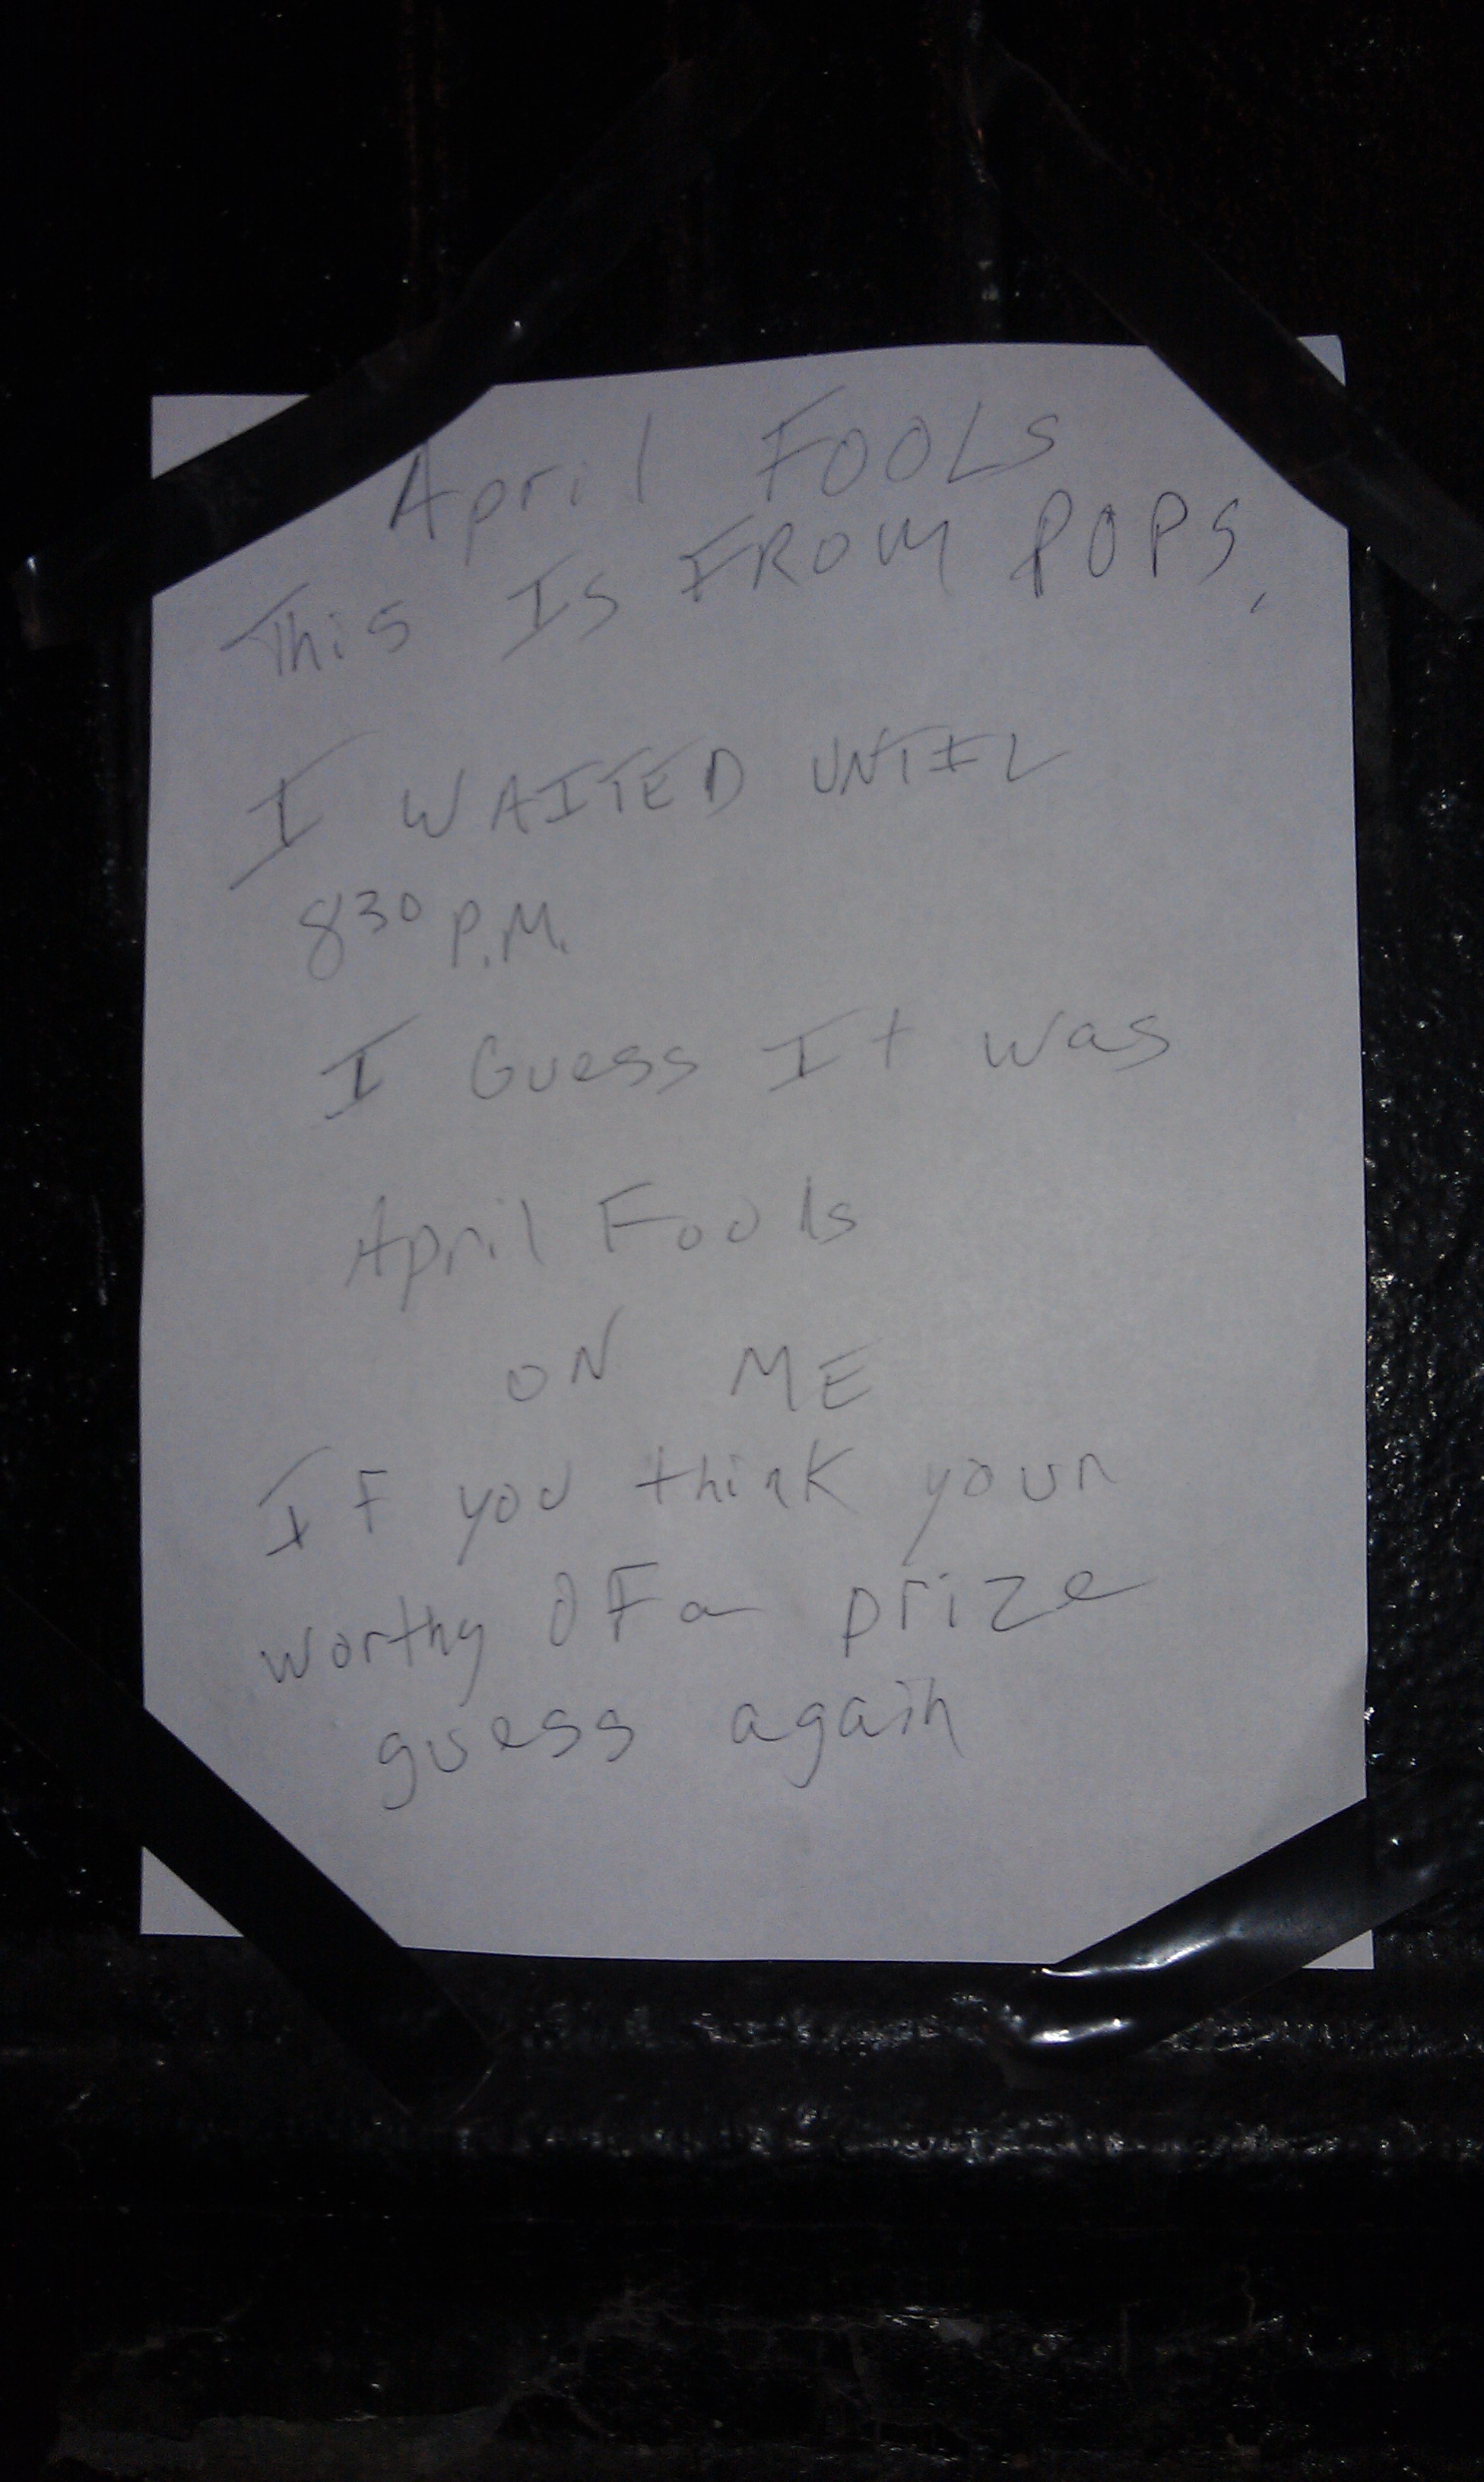 April FOOLs
This Is FROM POPS,
I WAITED UNTIL
8 30 P.M.
I Guess It was
April Fools
ON ME
IF you think your
worthy OF a prize
guess again